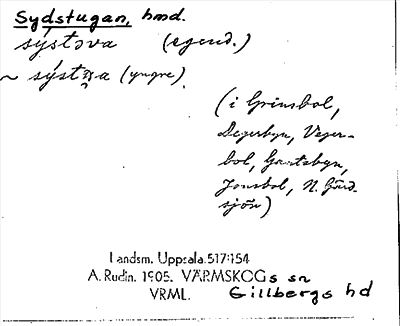 Sydstugan, hmd.
sýstəva (egend.)
~ sýstga (yngre)
(i Grinsbol,
Degerbyn, Veger-
bol, Gartsbyn,
Jonsbol, N. Gärd-
sjön)
Landsm. Uppsala 517:154
A. Rudin. 1905. VÄRMSKOGs sn
VRML. Gillbergs hd